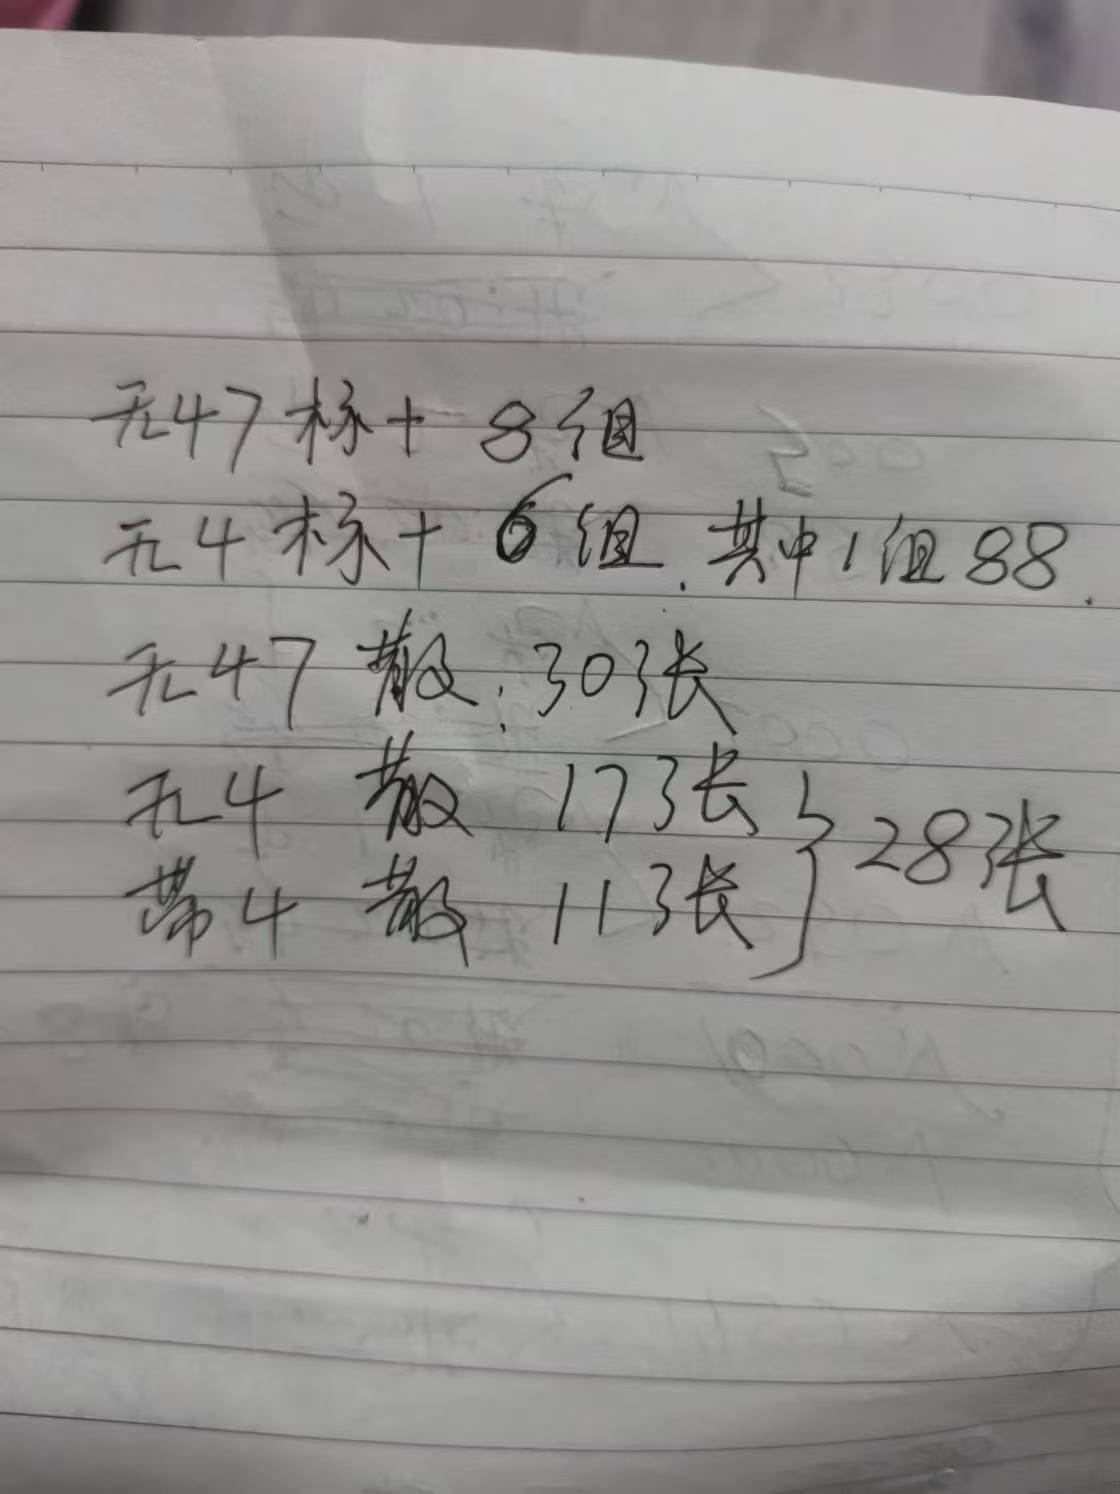 无47标十 8组
无4标十 6组.其中1组88.
无47 散:30张
无4 散 17张
带4 散 11张 } 28张